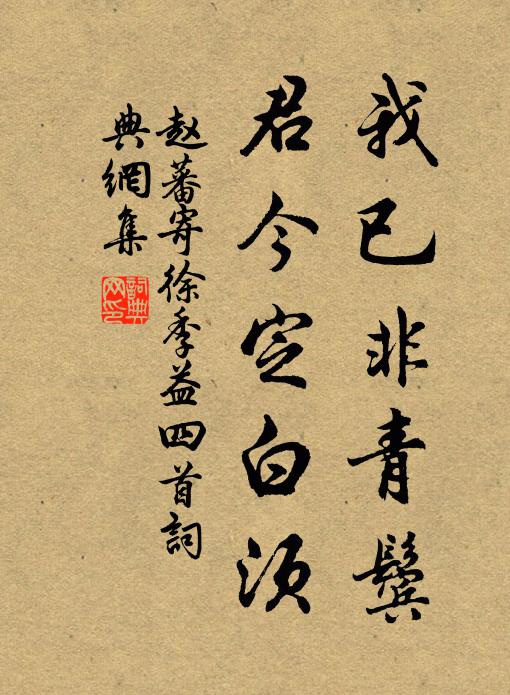 我已非青鬓
君今定白须
赵蕃寄徐季益四首詞
典網集
詞典
网印